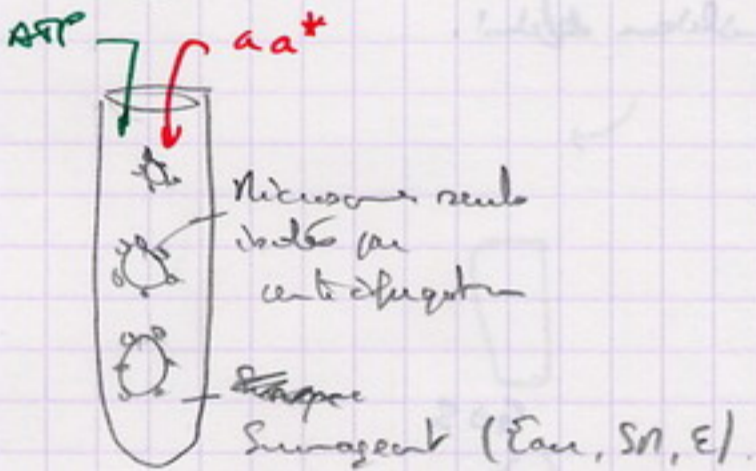 ATP
aa*
Microsome seuls
isolés par
centrifugation
Surnageant (Eau, SM, E).